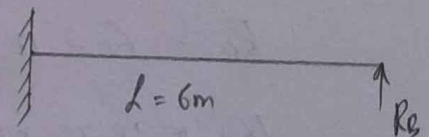 L = 6m
RB